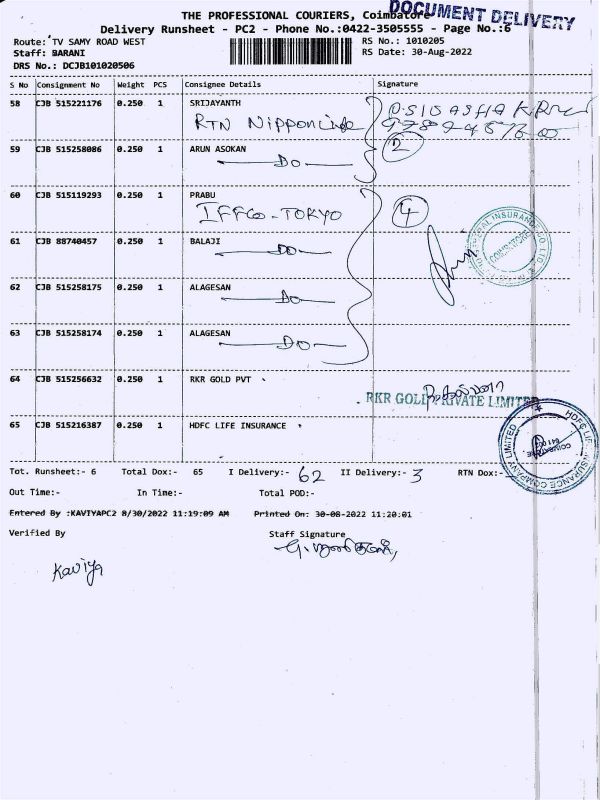 THE PROFESSIONAL COURIERS, Coimbatore
DOCUMENT DELIVERY
Delivery Runsheet - PC2 - Phone No.:0422-3505555 - Page No.:6
Route: TV SAMY ROAD WEST
RS No.: 1010205
Staff: BARANI
RS Date: 30-Aug-2022
DRS No.: DCJB101020506
S No Consignment No Weight PCS Consignee Details Signature
58 CJB 515221176 0.250 1 SRIJAYANTH
RTN
59 CJB 515258086 0.250 1 ARUN ASOKAN 2
DO
60 CJB 515119293 0.250 1 PRABU
IFFCO-TOKYO 4
61 CJB 88740457 0.250 1 BALAJI
DO
62 CJB 515258175 0.250 1 ALAGESAN
DO
63 CJB 515258174 0.250 1 ALAGESAN
DO
64 CJB 515256632 0.250 1 RKR GOLD PVT
RKR GOLD PRIVATE LIMITED
65 CJB 515216387 0.250 1 HDFC LIFE INSURANCE
HDFC LIFE INSURANCE COMPANY LIMITED
Tot. Runsheet:- 6 Total Dox:- 65 I Delivery:- 62 II Delivery:- 3 RTN Dox:-
Out Time:- In Time:- Total POD:-
Entered By :KAVIYAPC2 8/30/2022 11:19:09 AM Printed On: 30-08-2022 11:20:01
Verified By Staff Signature
Kaviya